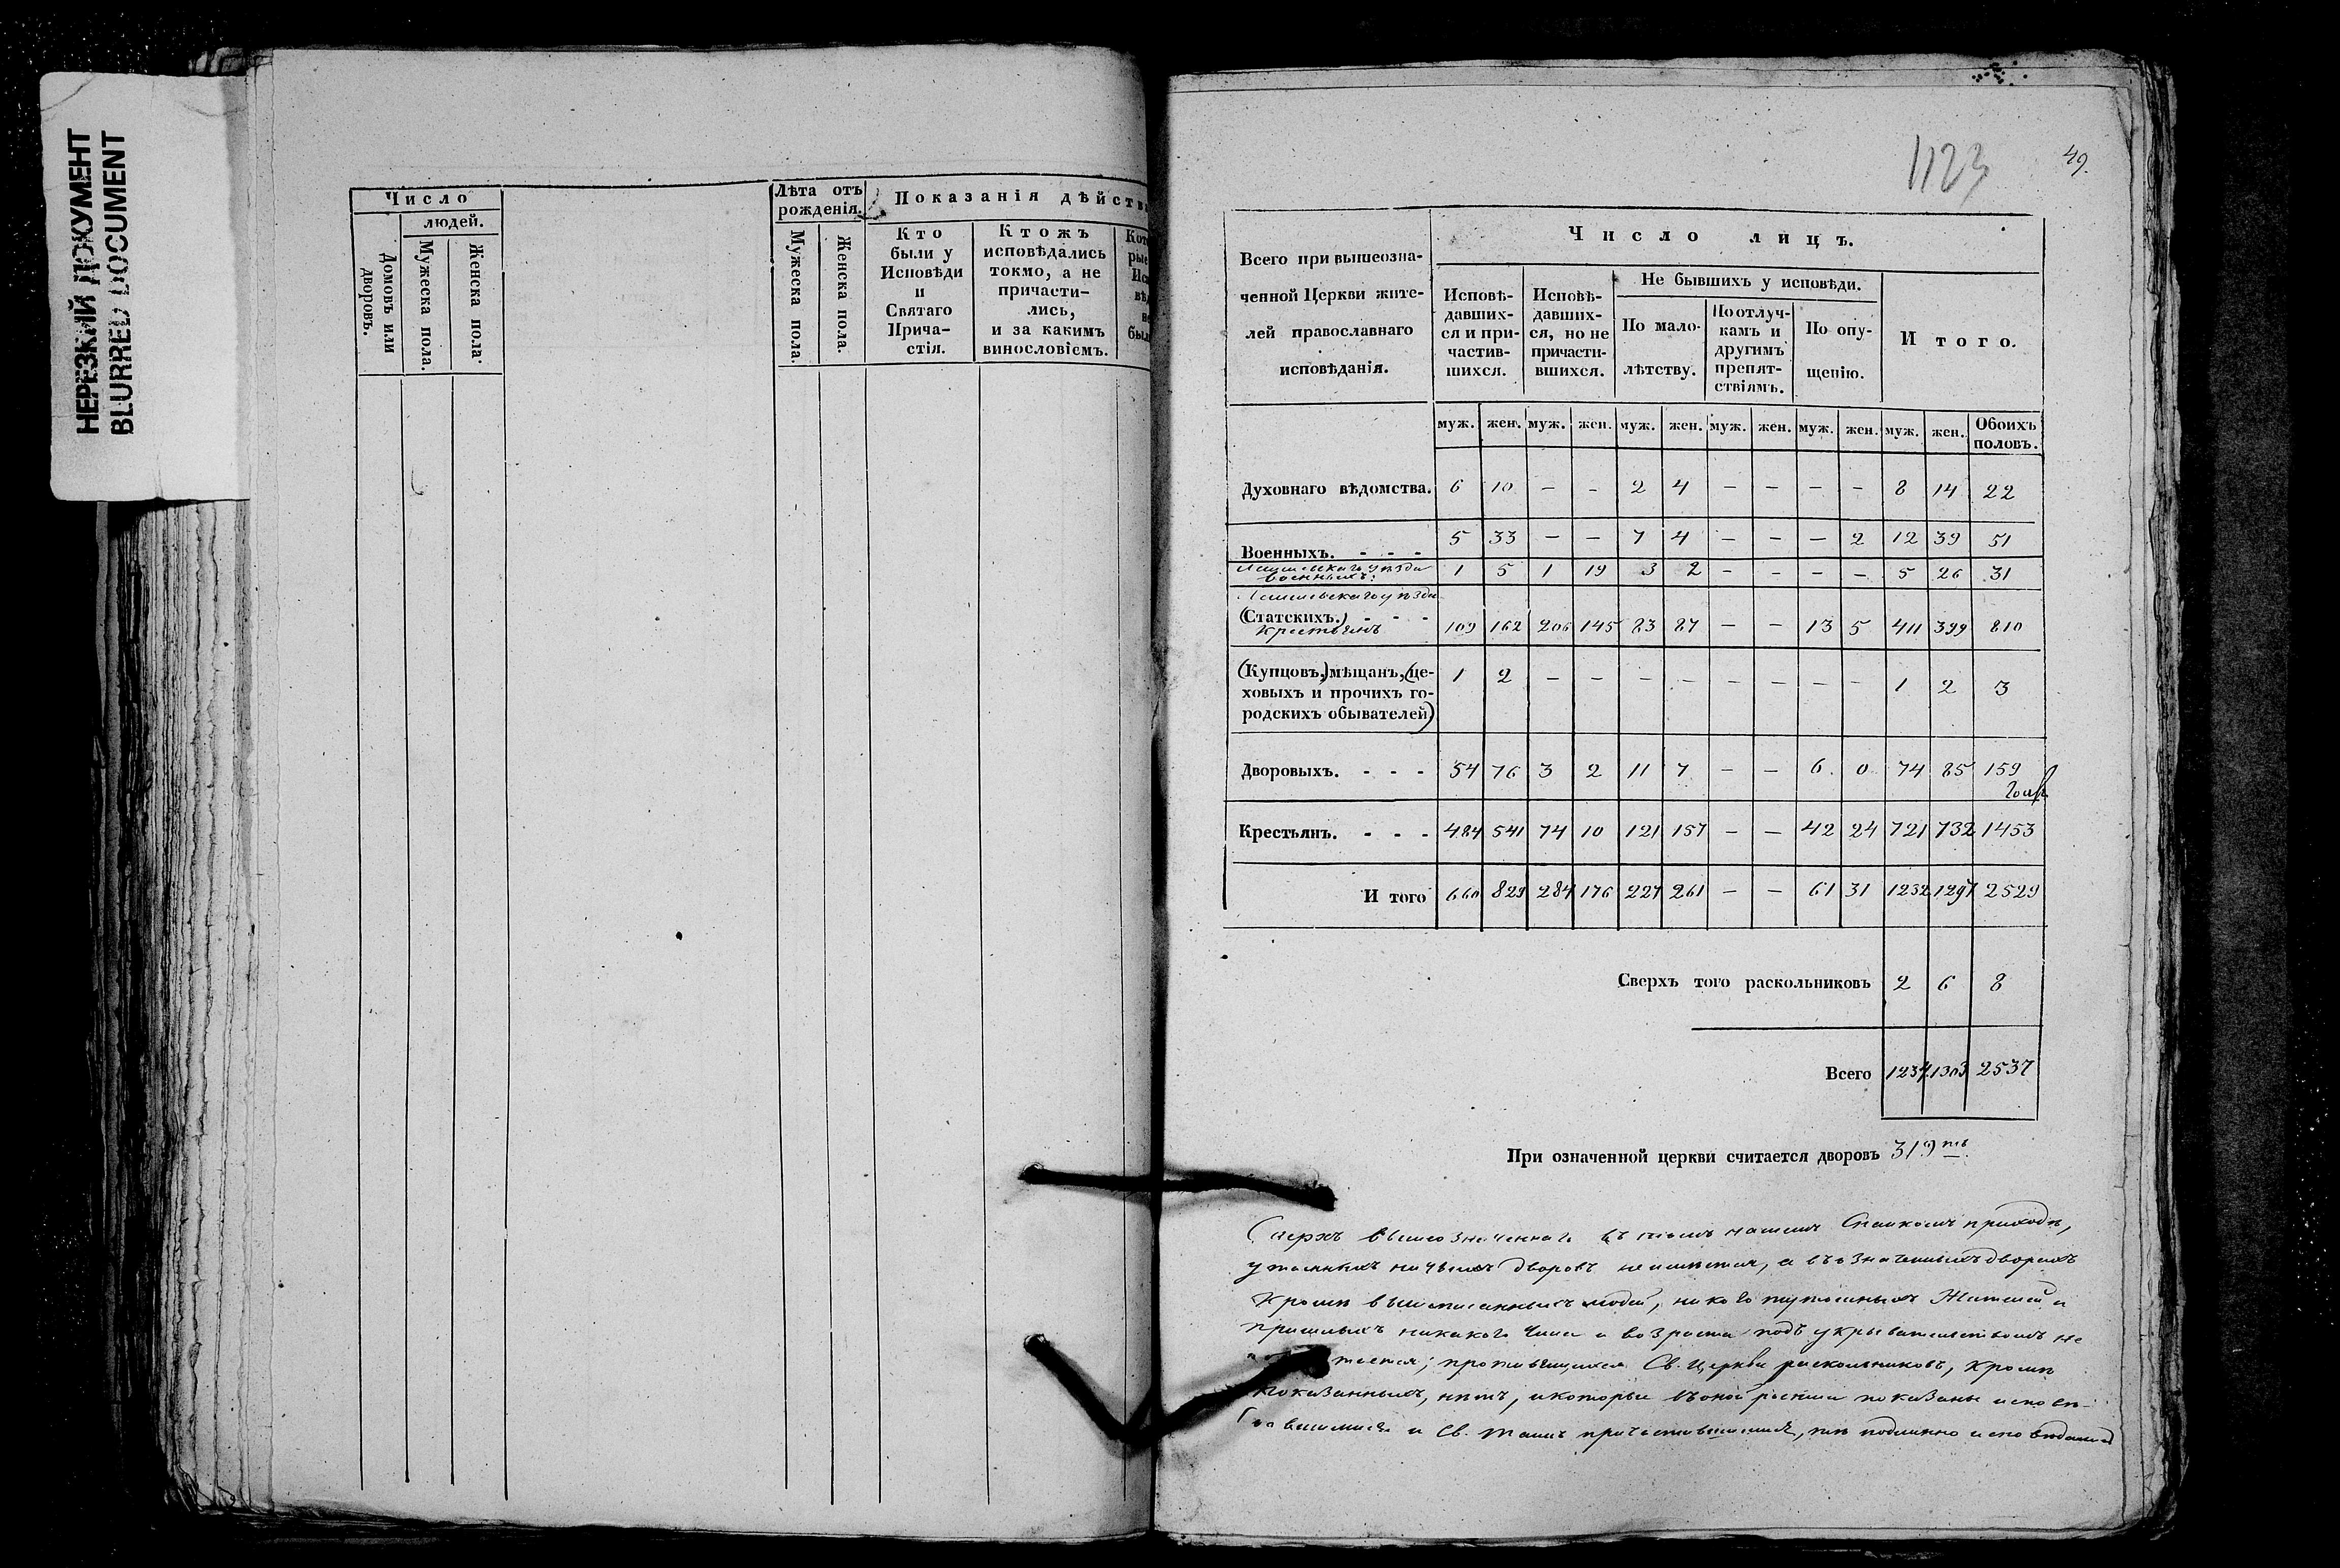 НЕРЕЗКИЙ ДОКУМЕНТ
BLURRED DOCUMENT
Число
людей.
Домовъ или дворовъ.
Мужеска пола.
Женска пола.
Лѣта отъ рожденія.
Мужеска пола.
Женска пола.
Показанія дѣйств
Кто были у Исповѣди и Святаго Прича-стія.
Ктожъ исповѣдались токмо, а не причасти-лись, и за какимъ винословіемъ.
1123
49.
Всего при вышеозна-
ченной Церкви жите-
лей православнаго
исповѣданія.
Число лицъ.
Исповѣ-давших-ся и при-частив-шихся.
Исповѣ-давших-ся, но не причасти-вшихся.
Не бывшихъ у исповѣди.
По мало-лѣтству.
По отлуч-камъ и другимъ препят-ствіямъ.
По опу-щенію.
Итого.
муж. жен. муж. жен. муж. жен. муж. жен. муж. жен. муж. жен. Обоихъ половъ.
Духовнаго вѣдомства. 6 10 — - 2 4 — — — — 8 14 22
Военныхъ. - - - 5 33 — — 7 4 — — — 2 12 39 51
уѣзда военныхъ: 1 5 1 19 3 2 — — — — 5 26 31
уѣзда
(Статскихъ.) - - -
Крестьянъ 109 162 206 145 83 87 — — 13 5 411 399 810
(Купцовъ,) мѣщанъ, (це-
ховыхъ и прочихъ го-
родскихъ обывателей) 1 2 — — — — — — — — 1 2 3
Дворовыхъ. - - - 54 76 3 2 11 7 — — 6 0 74 85 159
Крестьянъ. - - - 484 541 74 10 121 157 — — 42 24 721 732 1453
И того 660 829 284 176 227 261 — — 61 31 1232 1297 2529
Сверхъ того раскольниковъ 2 6 8
Всего 1234 1303 2537
При означенной церкви считается дворовъ 319
Сверхъ вышеозначеннаго въ томъ нашемъ приходѣ,
дворовъ не имѣется, а въ означенныхъ дворахъ
Кромѣ вышеписанныхъ людей, никого жителей и
пришлыхъ никакого чина и возраста подъ укрывательствомъ не
Св. Церкви раскольниковъ, кромѣ
показанныхъ, нѣтъ, и которые въ оной росписи показаны исповѣ-
и Св. Таинъ причастившимися, тѣ подлинно исповѣдались